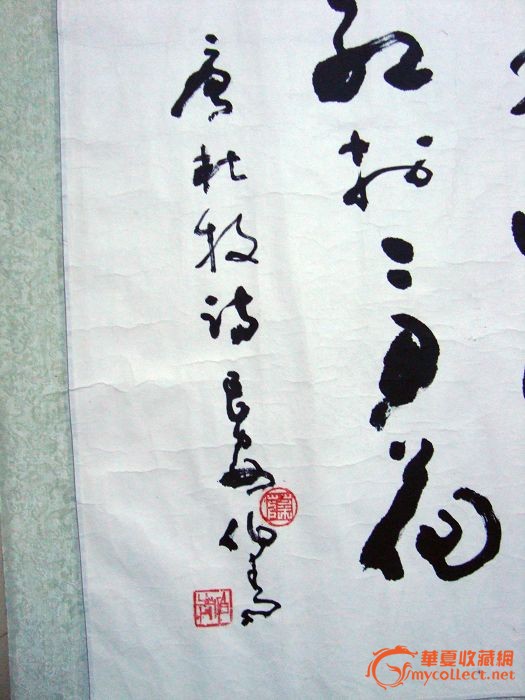 红於二月花
唐杜牧诗長安伯
華夏收藏網
mycollect.net